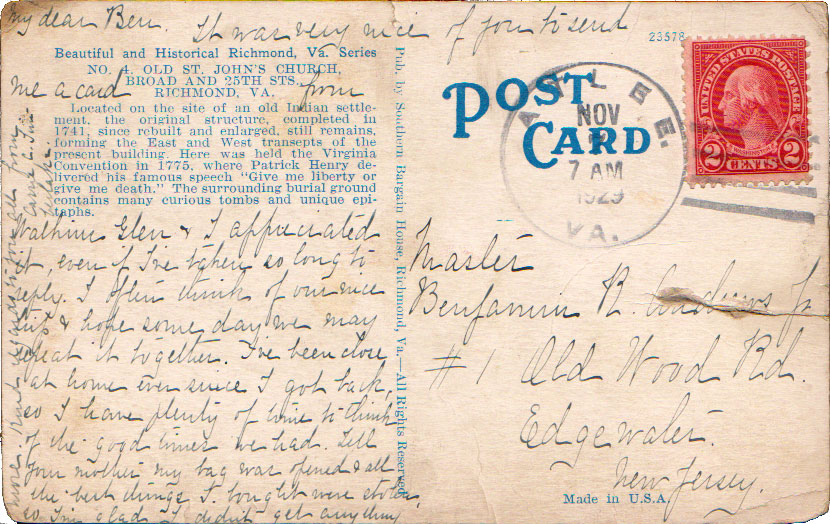 My dear Ben. It was very nice of you to send
23578
Beautiful and Historical Richmond, Va. Series
NO. 4. OLD ST. JOHN'S CHURCH,
BROAD AND 25TH STS.
RICHMOND, VA.
me a card from
Located on the site of an old Indian settle-
ment, the original structure, completed in
1741, since rebuilt and enlarged, still remains,
forming the East and West transepts of the
present building. Here was held the Virginia
Convention in 1775, where Patrick Henry de-
livered his famous speech "Give me liberty or
give me death." The surrounding burial ground
contains many curious tombs and unique epi-
taphs.
Watkins Glen & I appreciated
it, even if I've taken so long to
reply. I often think of our nice
trip & hope some day we may
repeat it together. I've been close
at home ever since I got back,
so I have plenty of time to think
of the good times we had. Tell
your mother my bag was opened & all
the best things I bought were stolen,
so I'm glad I didn't get anything
more. Kind regards to you all from
Pub. by Southern Bargain House, Richmond, Va.—All Rights Reserved
POST
CARD
ATLEE.
NOV
7 AM
1929
VA.
UNITED STATES POSTAGE
2 CENTS 2
Master
Benjamin R. Andrews Jr
#1 Old Wood Rd.
Edgewater.
New Jersey.
Made in U.S.A.